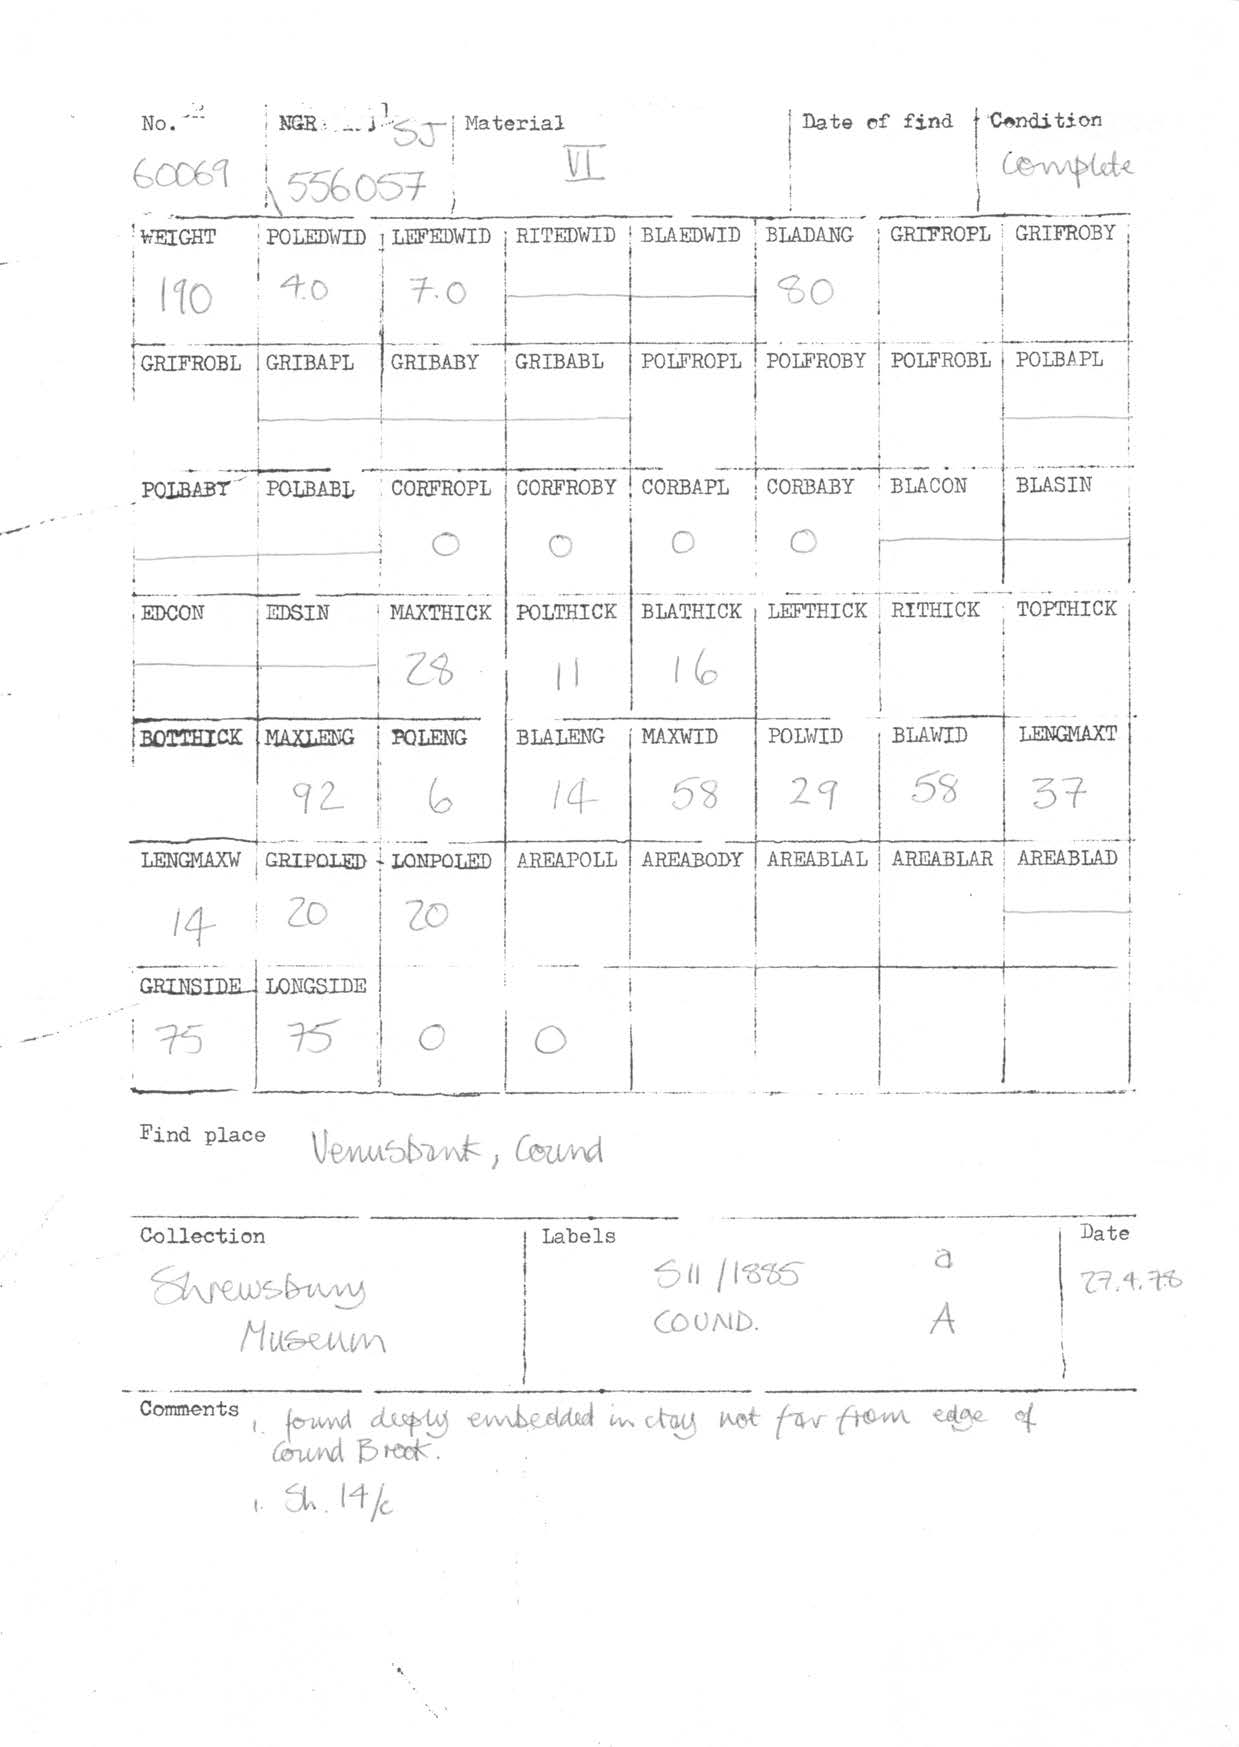 No. NGR SJ Material Date of find Condition
60069 556057 VI Complete
WEIGHT POLEDWID LEFEDWID RITEDWID BLAEDWID BLADANG GRIFROPL GRIFROBY
190 4.0 7.0 80
GRIFROBL GRIBAPL GRIBABY GRIBABL POLFROPL POLFROBY POLFROBL POLBAPL
POLBABY POLBABL CORFROPL CORFROBY CORBAPL CORBABY BLACON BLASIN
0 0 0 0
EDCON EDSIN MAXTHICK POLTHICK BLATHICK LEFTHICK RITHICK TOPTHICK
28 11 16
BOTTHICK MAXLENG POLENG BLALENG MAXWID POLWID BLAWID LENGMAXT
92 6 14 58 29 58 37
LENGMAXW GRIPOLED LONPOLED AREAPOLL AREABODY AREABLAL AREABLAR AREABLAD
14 20 20
GRINSIDE LONGSIDE
75 75 0 0
Find place Venusbank, Cound
Collection Labels Date
Shrewsbury S11/1885 a 27.4.78
Museum COUND. A
Comments 1. found deeply embedded in clay not far from edge of
Cound Brook.
1. Sh. 14/c